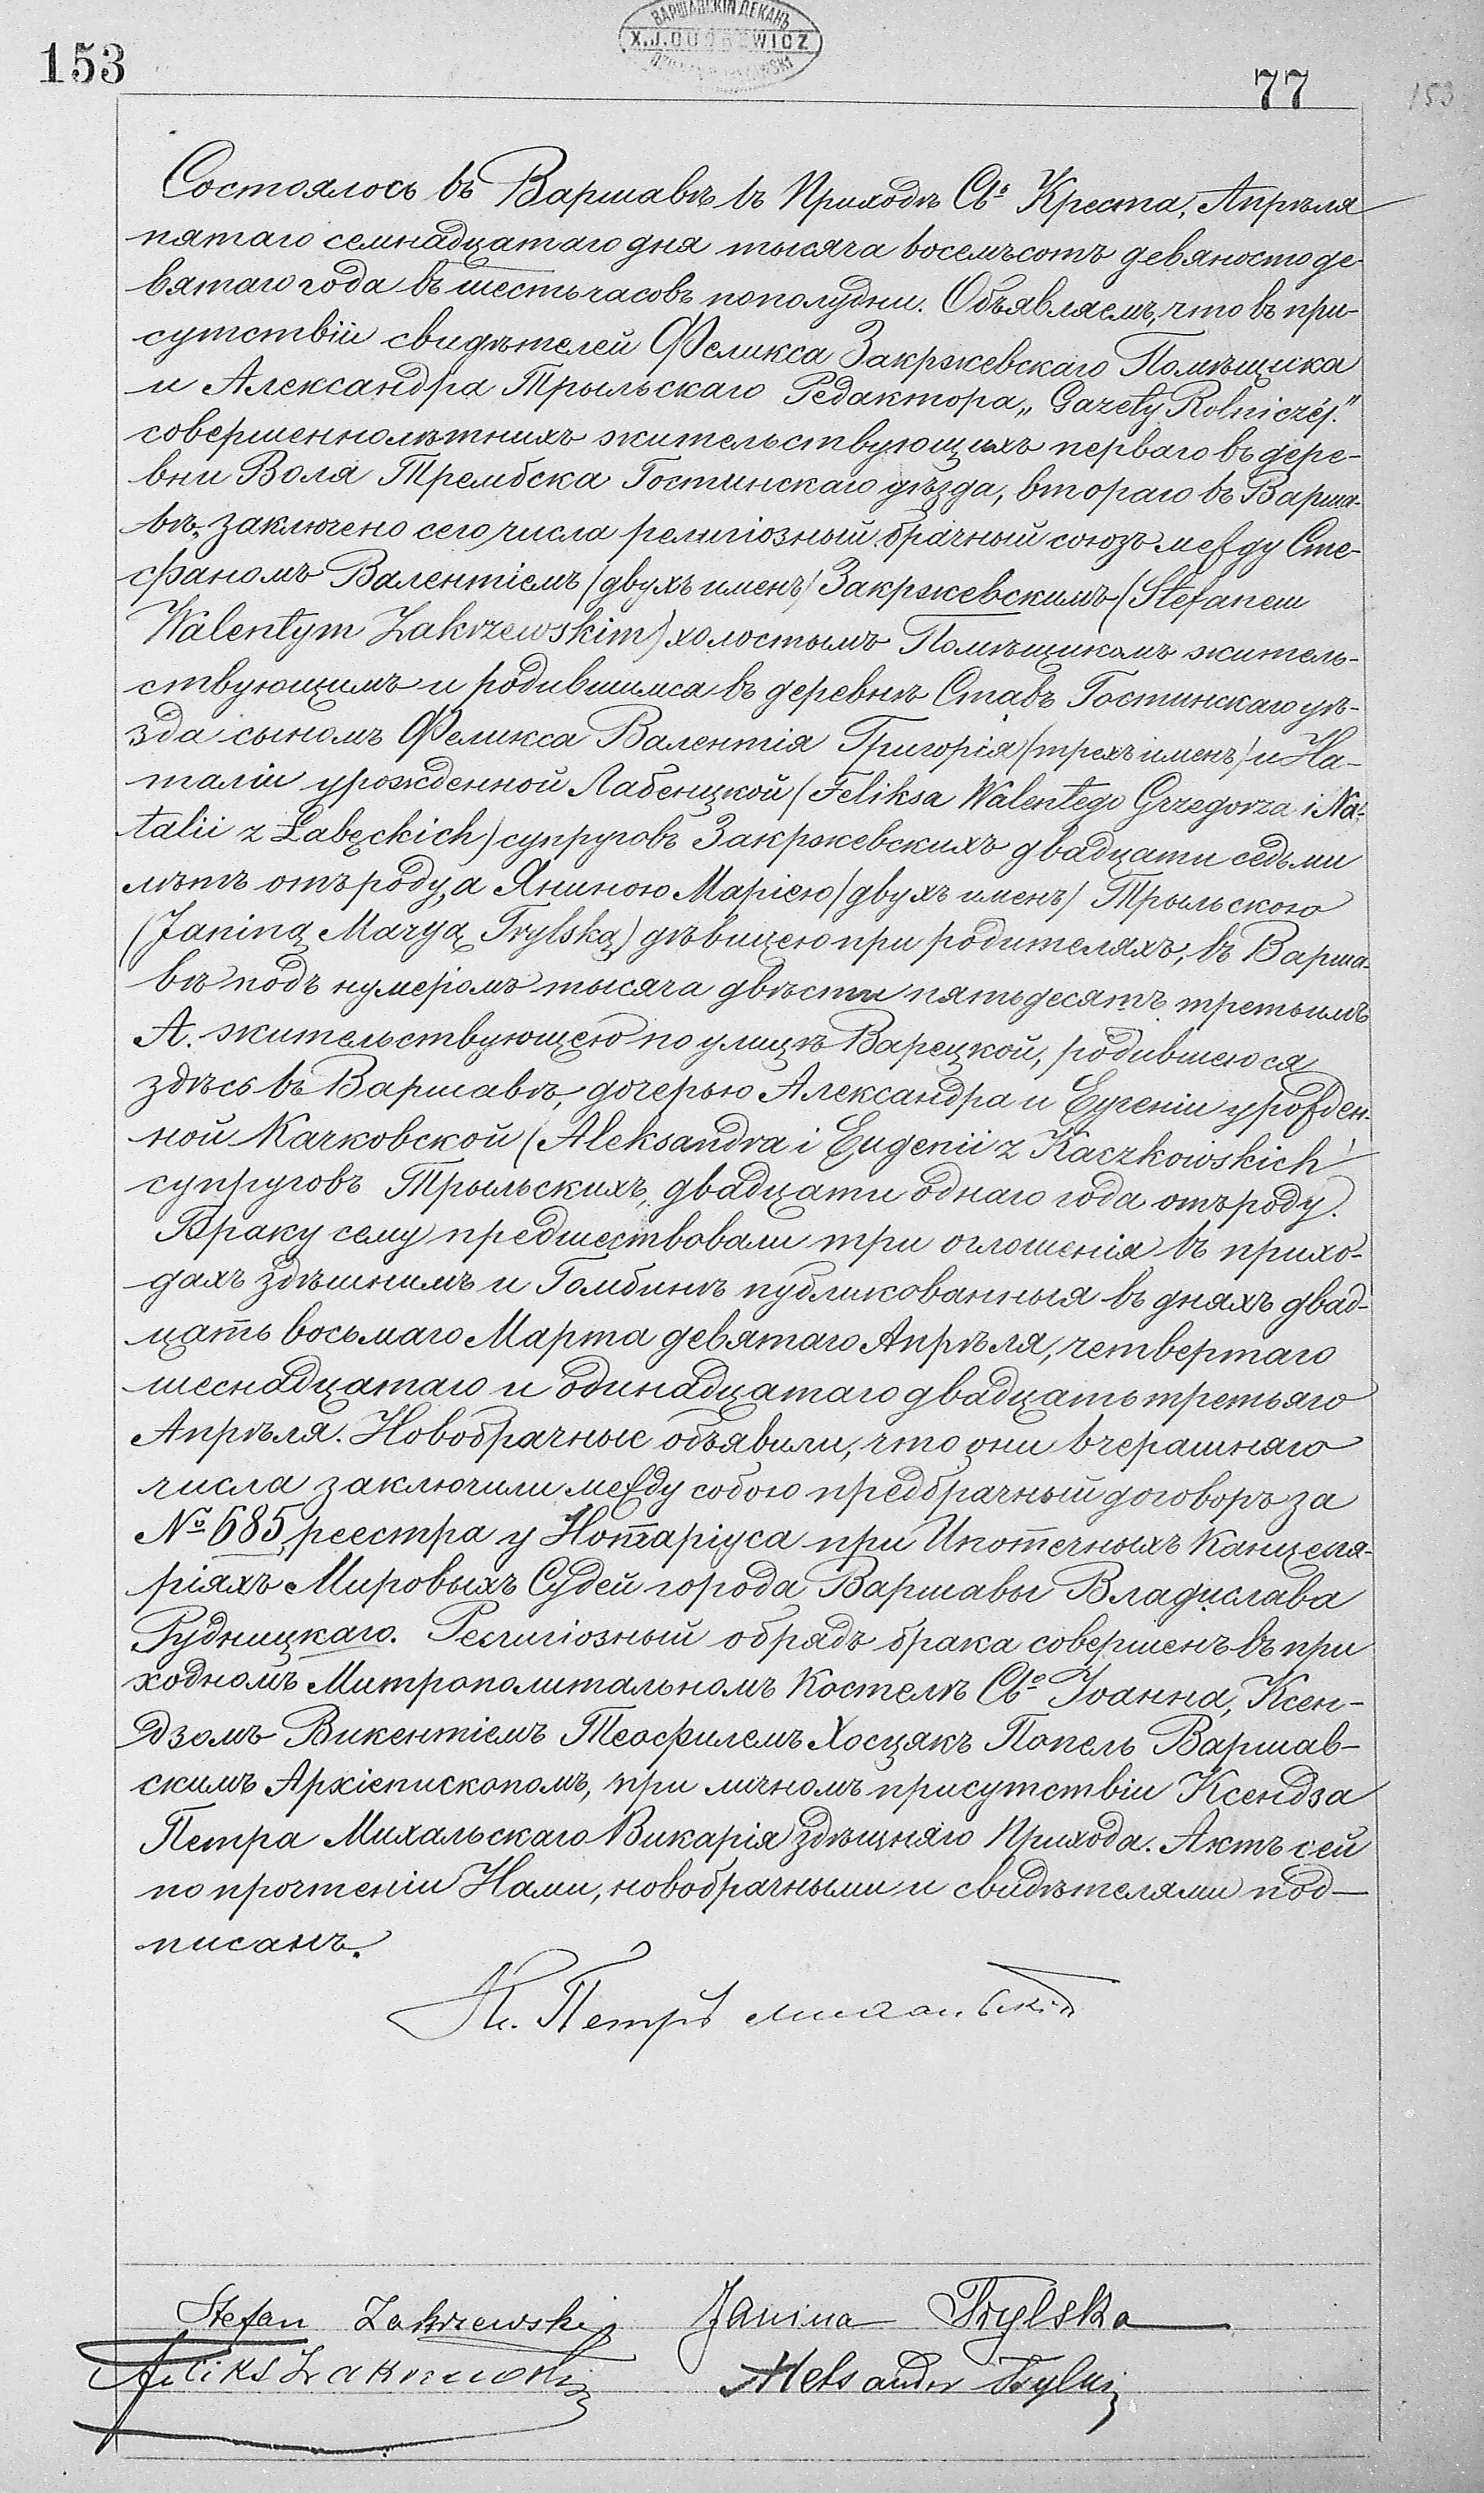 ВАРШАВСКІЙ ДЕКАНЪ
153
77
153
Состоялось въ Варшавѣ въ Приходѣ Св.º Креста, Апрѣля
пятаго семнадцатаго дня тысяча восемьсотъ девяносто де-
вятаго года въ шесть часовъ пополудни. Объявляемъ, что въ при-
сутствіи свидѣтелей Феликса Закржевскаго Помѣщика
и Александра Трыльскаго Редактора „Gazety Rolniczéj."
совершеннолѣтнихъ жительствующихъ перваго въ дере-
вни Воля Трембска Гостинскаго уѣзда, втораго въ Варша-
вѣ, заключено сего числа религіозный брачный союзъ между Сте-
фаномъ Валентіемъ (двухъ именъ) Закржевскимъ (Stefanem
Walentym Zakrzewskim) холостымъ Помѣщикомъ житель-
ствующимъ и родившимся въ деревнѣ Ставъ Гостинскаго уѣ-
зда сыномъ Феликса Валентія Григорія (трехъ именъ) и На-
таліи урожденной Лабенцкой (Feliksa Walentego Grzegorza i Na-
talii z Łabęckich) супруговъ Закржевскихъ двадцати седьми
лѣтъ отъ роду, а Яниною Маріею (двухъ именъ) Трыльскою
(Janiną Maryą Trylską) дѣвицею при родителяхъ, въ Варша-
вѣ подъ нумеромъ тысяча двѣсти пятьдесятъ третьимъ
А. жительствующею по улицѣ Варецкой, родившеюся
здѣсь въ Варшавѣ, дочерью Александра и Евгеніи урожден-
ной Качковской (Aleksandra i Eugenii z Kaczkowskich)
супруговъ Трыльскихъ, двадцати однаго года отъ роду.
Браку сему предшествовали три оглошенія въ прихо-
дахъ здѣшнимъ и Гомбинѣ публикованныя въ дняхъ двад-
цать восьмаго Марта девятаго Апрѣля, четвертаго
шеснадцатаго и одинадцатаго двадцать третьяго
Апрѣля. Новобрачные объявили, что они вчерашняго
числа заключили между собою предбрачный договоръ за
№ 685 реестра у Нотаріуса при Ипотечныхъ Канцеля-
ріяхъ Мировыхъ Судей города Варшавы Владислава
Рудницкаго. Религіозный обрядъ брака совершенъ въ при
ходномъ Митрополитальномъ Костелѣ Св.º Іоанна, Ксен-
дзомъ Викентіемъ Теофилемъ Хосцякъ Попель Варшав-
скимъ Архіепископомъ, при личномъ присутствіи Ксендза
Петра Михальскаго Викарія здѣшняго Прихода. Актъ сей
по прочтеніи Нами, новобрачными и свидѣтелями под-
писанъ.
Кс. Петръ Михальскій
Stefan Zakrzewski Janina Trylska
Feliks Zakrzewski Aleksander Trylski